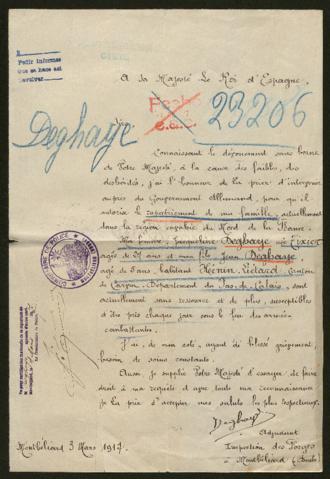 Pedir informes
A Sa Majesté Le Roi d'Espagne,
23206
Deghaye
Connaissant le dévouement sans borne
de Votre Majesté, à la cause des faibles, des
déshérités, j'ai l'honneur de la prier d'intervenir
auprès du Gouvernement Allemand, pour qu'il
autorise le rapatriement de ma famille, actuellement
dans la région envahie du Nord de la France.
Ma femme, Jacqueline Deghaye née
âgée de ans et mon fils Jean Deghaye,
agé de 5 ans, habitant Hénin-Liétard canton
de Carvin, Département du Pas-de-Calais, sont
actuellement sans ressource et de plus, susceptibles
d'être pris chaque jour sous le feu des armées
combattantes.
J'ai, de mon coté, ayant été blessé grièvement,
besoin de soins constants.
Aussi je supplie Votre Majesté d'essayer, de faire
droit à ma requête et avec toute ma reconnaissance
je la prie d'accepter mes saluts les plus respectueux.
Deghaye
Adjudant
Inspection des Forges
à Montbéliard (Doubs)
Montbéliard 3 Mars 1917.